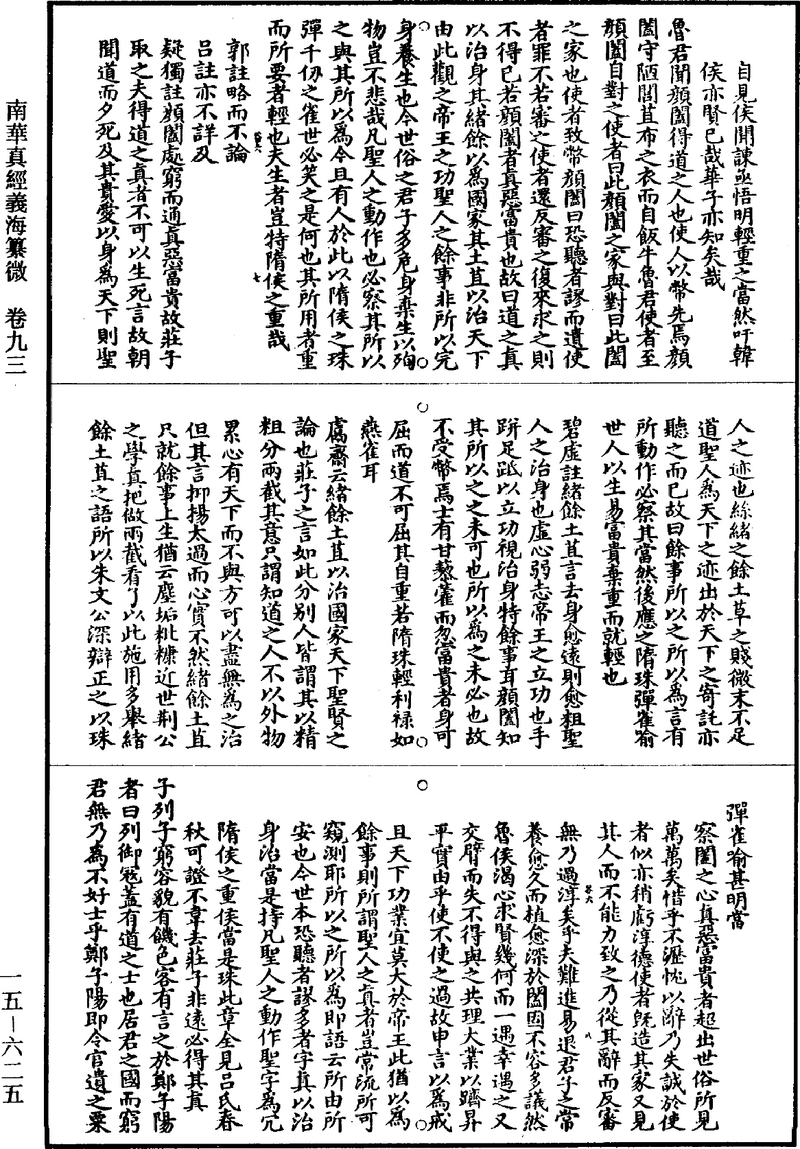 自見侯聞諫亟悟明輕重之當然吁韓
侯亦賢已哉華子亦知矣哉
魯君聞顏闔得道之人也使人以幣先焉顏
闔守陋閭苴布之衣而自飯牛魯君使者至
顏闔自對之使者曰此顏闔之家與對曰此闔
之家也使者致幣顏闔曰恐聽者謬而遺使
者罪不若審之使者還反審之復來求之則
不得已若顏闔者真惡富貴也故曰道之真
以治身其緒餘以為國家其土苴以治天下
由此觀之帝王之功聖人之餘事非所以完
身養生也今世俗之君子多危身棄生以殉
物豈不悲哉凡聖人之動作也必察其所以
之與其所以為今且有人於此以隋侯之珠
彈千仞之雀世必笑之是何也其所用者重
而所要者輕也夫生者豈特隋侯之重哉
郭註略而不論
呂註亦不詳及
疑獨註顏闔處窮而通真惡富貴故莊子
取之夫得道之真者不可以生死言故朝
聞道而夕死及其貴愛以身為天下則聖
人之迹也絲緒之餘土草之賤微末不足
道聖人為天下之迹出於天下之寄託亦
聽之而已故曰餘事所以之所以為言有
所動作必察其當然後應之隋珠彈雀喻
世人以生易富貴棄重而就輕也
碧虛註緒餘土苴言去身愈遠則愈粗聖
人之治身也虛心弱志帝王之立功也手
跰足胝以立功視治身特餘事耳顏闔知
其所以之之未可也所以為之未必也故
不受幣焉士有甘藜藿而忽富貴者身可
屈而道不可屈其自重若隋珠輕利祿如
燕雀耳
鬳齋云緒餘土苴以治國家天下聖賢之
論也莊子之言如此分別人皆謂其以精
粗分兩截其意只謂知道之人不以外物
累心有天下而不與方可以盡無為之治
但其言抑揚太過而心實不然緒餘土苴
只就餘事上生猶云塵垢粃糠近世荆公
之學真把做兩截看了以此施用多舉緒
餘土苴之語所以朱文公深辯正之以珠
彈雀喻甚明當
察闔之心真惡富貴者超出世俗所見
萬萬矣惜乎不遜忱以辭乃失誠於使
者似亦稍虧淳德使者旣造其家又見
其人而不能力致之乃從其辭而反審
無乃過淳矣乎夫難進易退君子之常
養愈久而植愈深於闔固不容多議然
魯侯渴心求賢幾何而一遇幸遇之又
交臂而失不得與之共理大業以躋昇
平實由乎使不使之過故申言以為戒
且天下功業宜莫大於帝王此猶以為
餘事則所謂聖人之真者豈常流所可
窺測耶所以之所以為即語云所由所
安也今世本恐聽者謬多者字真以治
身治當是持凡聖人之動作聖字為冗
隋侯之重侯當是珠此章全見呂氏春
秋可證不韋去莊子非遠必得其真
子列子窮容貌有饑色客有言之於鄭子陽
者曰列御寇蓋有道之士也居君之國而窮
君無乃為不好士乎鄭子陽即令官遺之粟
南華真經義海纂微　卷九三
一五—六二五